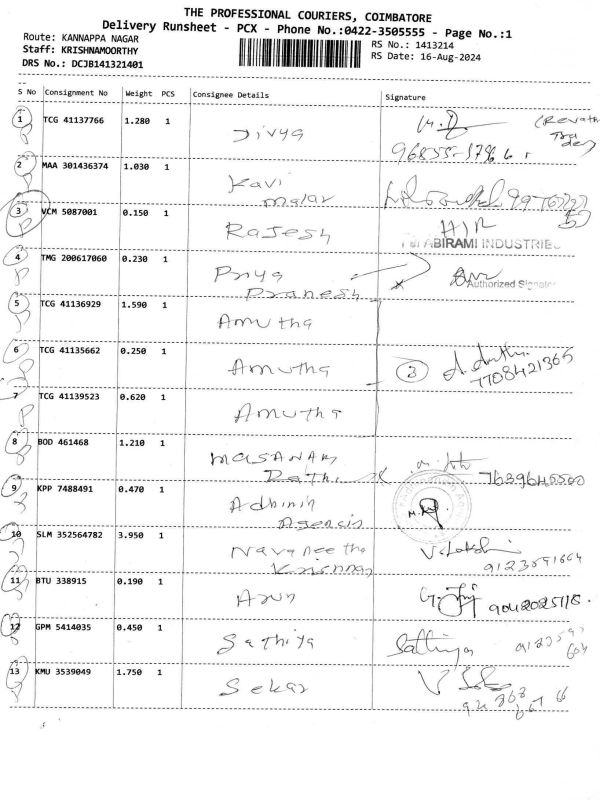 THE PROFESSIONAL COURIERS, COIMBATORE
Delivery Runsheet - PCX - Phone No.:0422-3505555 - Page No.:1
Route: KANNAPPA NAGAR
Staff: KRISHNAMOORTHY
DRS No.: DCJB141321401
RS No.: 1413214
RS Date: 16-Aug-2024
S No Consignment No Weight PCS Consignee Details Signature
1 TCG 41137766 1.280 1 Divya
2 MAA 301436374 1.030 1 Kavi
malar
3 VCM 5087001 0.150 1 Rajesh
ABIRAMI INDUSTRIES
4 TMG 200617060 0.230 1 Priya
Pranesh
Authorized Signator
5 TCG 41136929 1.590 1 Amutha
6 TCG 41135662 0.250 1 Amutha 3
7708421365
7 TCG 41139523 0.620 1 Amutha
8 BOD 461468 1.210 1 MASANAM
9 KPP 7488491 0.470 1 Adhinin
Agencis
10 SLM 352564782 3.950 1 Navaneetha
Krishnan
11 BTU 338915 0.190 1 Arun
9042025118
12 GPM 5414035 0.450 1 Sathiya Sathiya
13 KMU 3539049 1.750 1 Sekar